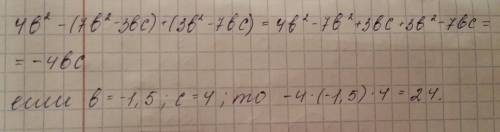 4b² - (7b² - 3bc) + (3b² - 7bc) = 4b² - 7b² + 3bc + 3b² - 7bc =
= -4bc
если b = -1,5; c = 4; то -4·(-1,5)·4 = 24.